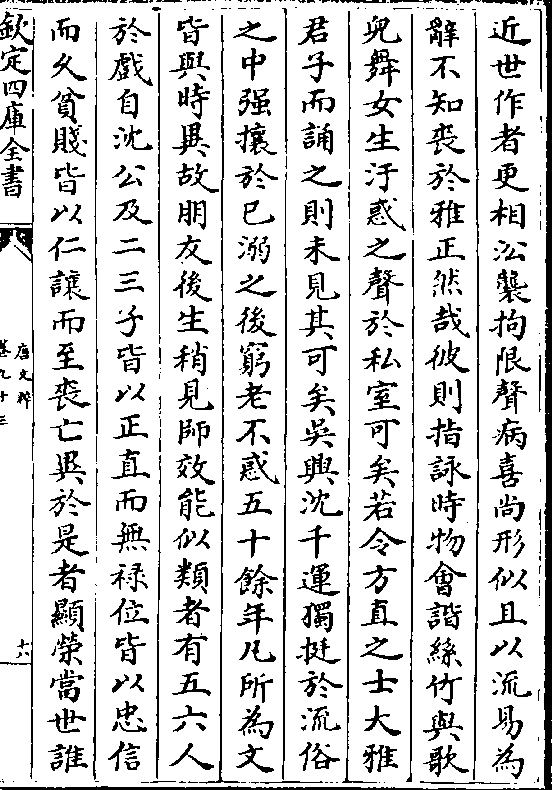 近世作者更相沿襲拘限聲病喜尚形似且以流易為
辭不知喪於雅正然哉彼則指詠時物會諧絲竹與歌
兒舞女生汙惑之聲於私室可矣若令方直之士大雅
君子而誦之則未見其可矣吳興沈千運獨挺於流俗
之中强攘於已溺之後窮老不惑五十餘年凡所為文
皆與時異故朋友後生稍見師效能似類者有五六人
於戲自沈公及二三子皆以正直而無祿位皆以忠信
而久貧賤皆以仁讓而至喪亡異於是者顯榮當世誰
欽定四庫全書
唐文粹
卷九十三
十六